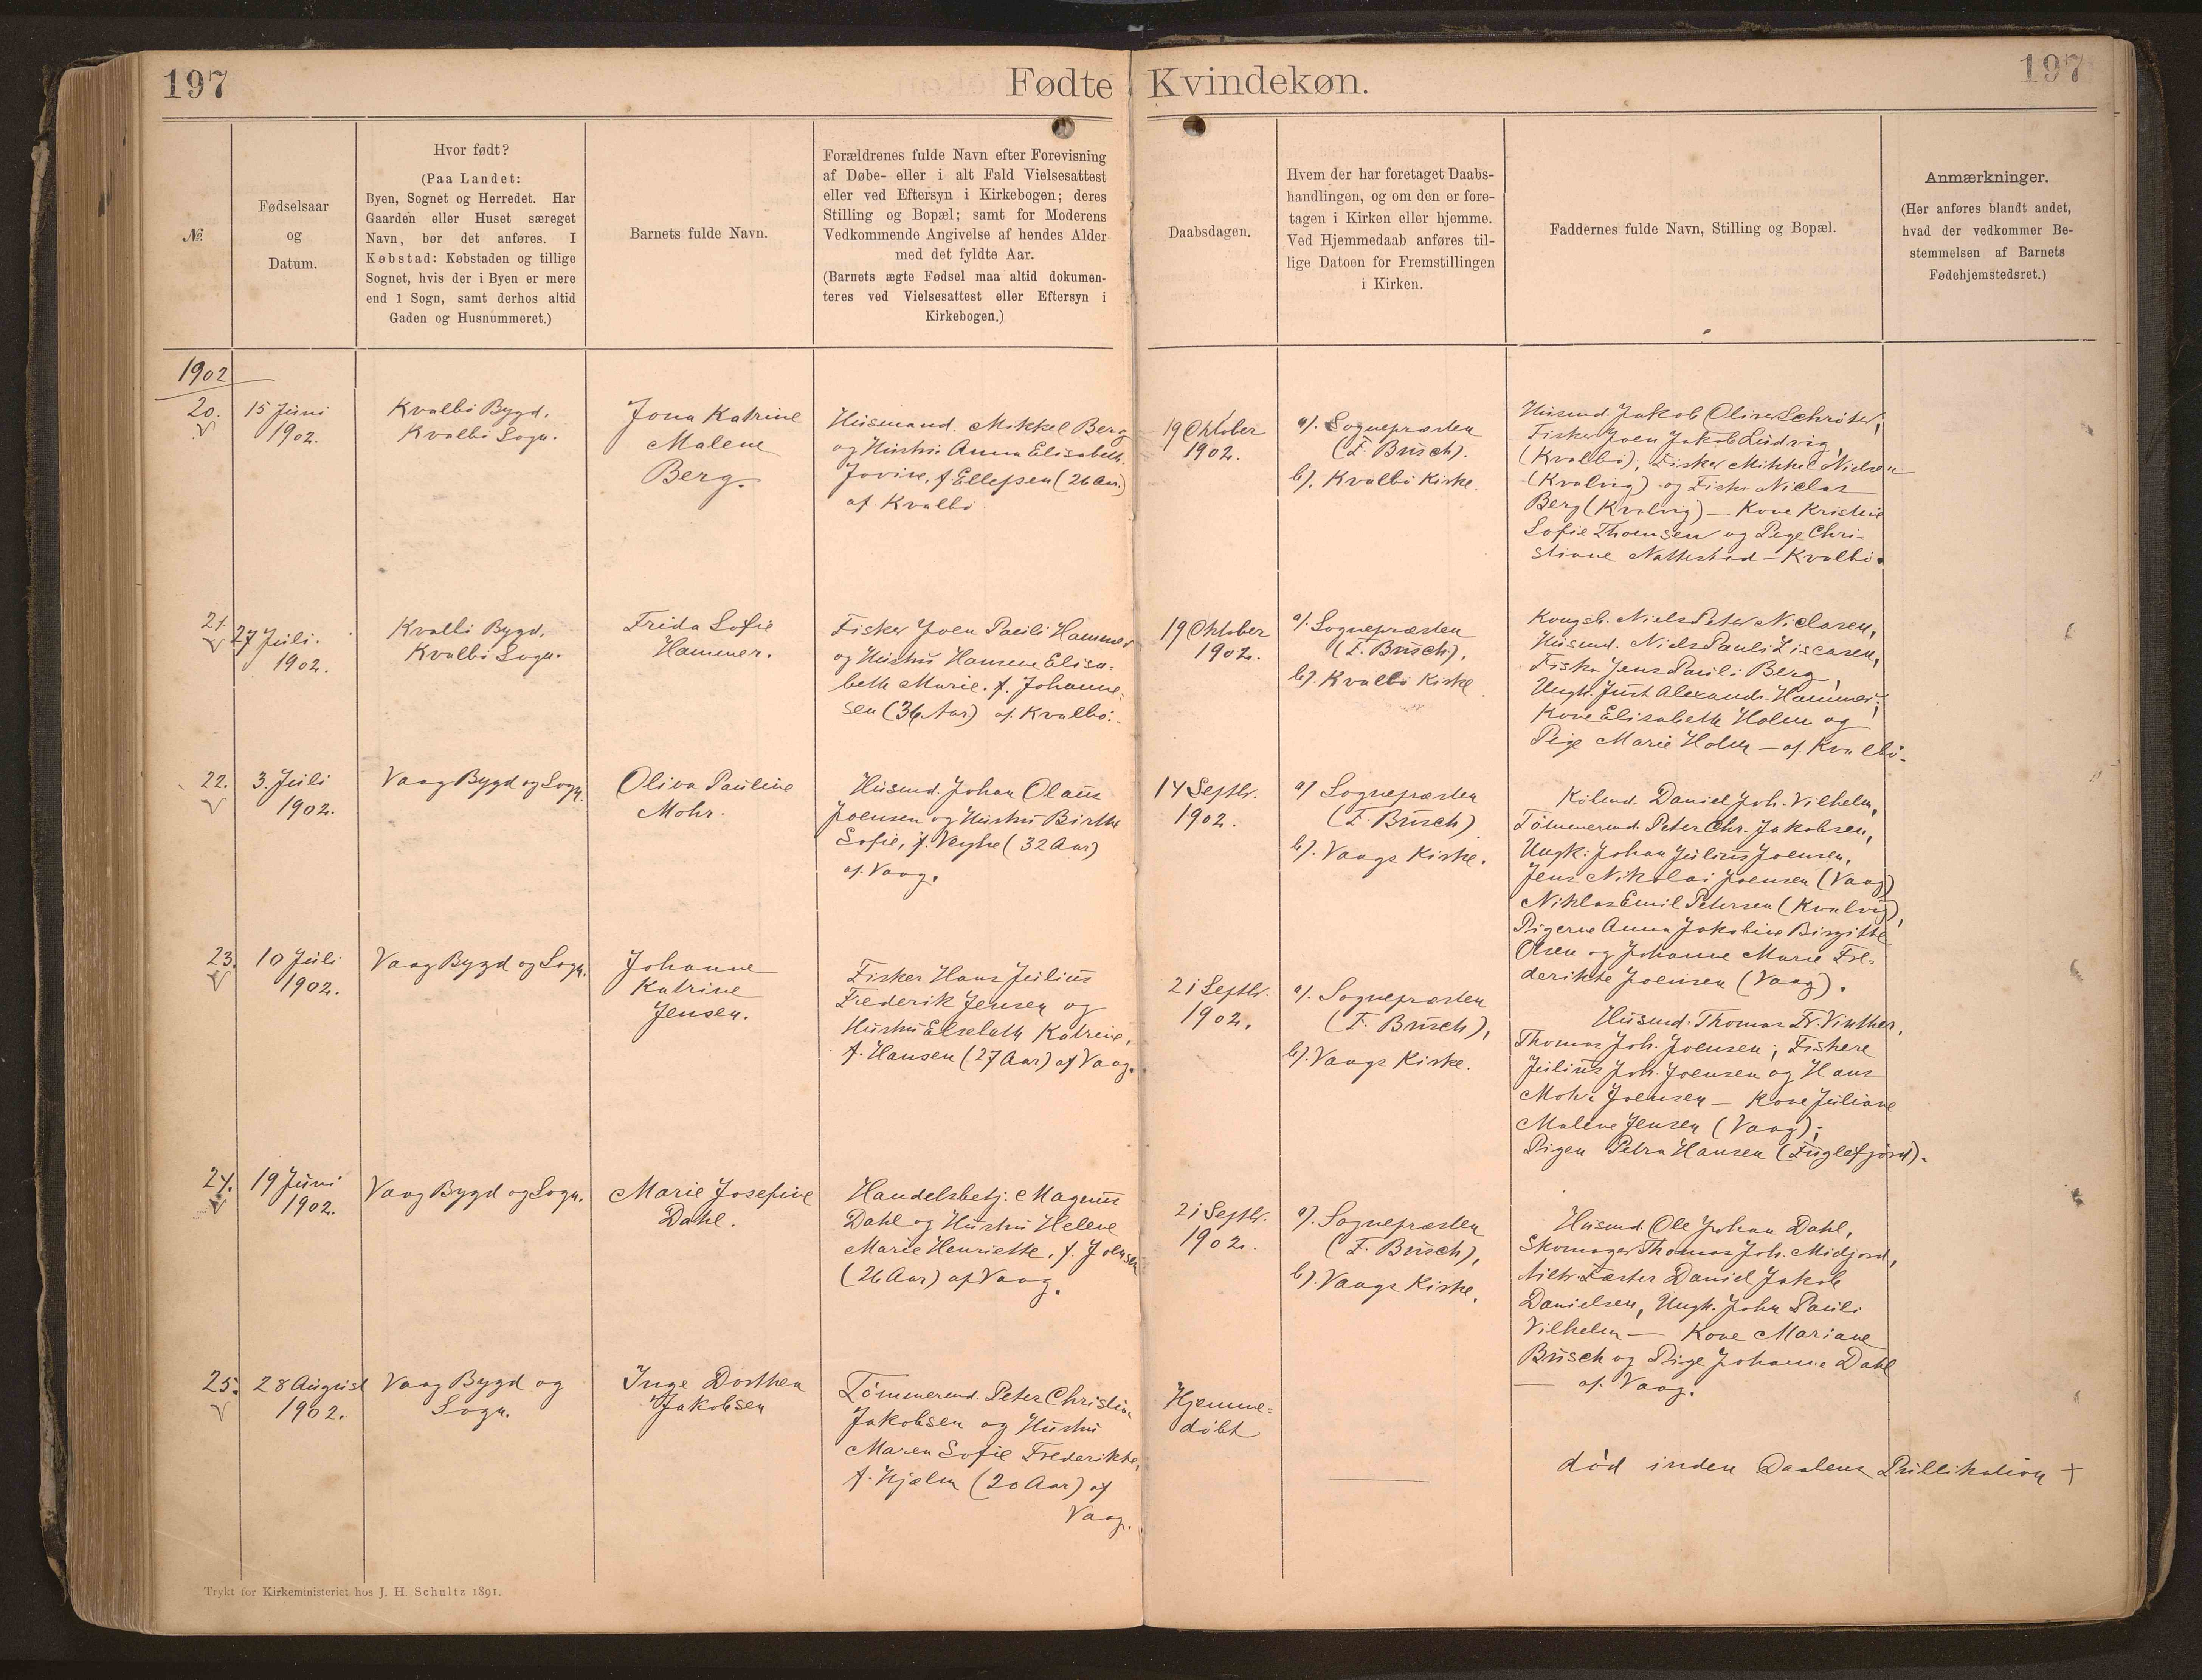 197
Fødte Kvindekøn.
197
№.
Fødselsaar
og
Datum.
Hvor født?
(Paa Landet:
Byen, Sognet og Herredet. Har
Gaarden eller Huset særeget
Navn, bør det anføres. I
Købstad: Købstaden og tillige
Sognet, hvis der i Byen er mere
end 1 Sogn, samt derhos altid
Gaden og Husnummeret.)
Barnets fulde Navn.
Forældrenes fulde Navn efter Forevisning
af Døbe- eller i alt Fald Vielsesattest
eller ved Eftersyn i Kirkebogen; deres
Stilling og Bopæl; samt for Moderens
Vedkommende Angivelse af hendes Alder
med det fyldte Aar.
(Barnets ægte Fødsel maa altid dokumen-
teres ved Vielsesattest eller Eftersyn i
Kirkebogen.)
Daabsdagen.
Hvem der har foretaget Daabs-
handlingen, og om den er fore-
tagen i Kirken eller hjemme.
Ved Hjemmedaab anføres til-
lige Datoen for Fremstillingen
i Kirken.
Faddernes fulde Navn, Stilling og Bopæl.
Anmærkninger.
(Her anføres blandt andet,
hvad der vedkommer Be-
stemmelsen af Barnets
Fødehjemstedsret.)
1902
20.
15 Juni
1902.
Kvalbö Bygd,
Kvalbö Sogn.
Jona Katrine
Malene
Berg.
Husmand. Mikkel Berg
og Hustru Anna Elisabeth
Jovine, f. Ellefsen (26 Aar)
af Kvalbö
19 Oktober
1902.
a). Sognepræsten
(F. Busch).
b). Kvalbö Kirke.
Husmd. Jakob Oliver Schröter,
Fisker Joen Jakob Ludvig
(Kvalbö), Fisker Mikkel Nielsen
(Kvalvig) og Fisker Niclas
Berg (Kvalvig) — Kone Kristine
Sofie Thomsen og Pige Chri-
stiane Nattestad — Kvalbö.
21.
27 Juli.
1902.
Kvalbö Bygd,
Kvalbö Sogn.
Frida Sofie
Hammer.
Fisker Joen Pauli Hammer
og Hustru Hansine Elisa-
beth Marie. f. Johanne-
sen (36 Aar) af Kvalbö.
19 Oktober
1902.
a). Sognepræsten
(F. Busch).
b). Kvalbö Kirke
Kongsb. Niels Peter Niclasen,
Husmd. Niels Pauli Liscasen,
Fisker Jens Pauli Berg,
Ungk. Just Alexandr. Hammer;
Kone Elisabeth Holm og
Pige Marie Holm — af Kvalbö.
22.
3. Juli
1902.
Vaag Bygd og Sogn.
Oliva Pauline
Mohr.
Husmd. Johan Olaus
Joensen og Hustru Birthe
Sofie, f. Veyhe (32 Aar)
af Vaag.
14 Septbr.
1902.
a) Sognepræsten
(F. Busch)
b). Vaags Kirke.
Købmd. Daniel Joh. Vilhelm,
Tömmermd. Peter Chr. Jakobsen,
Ungk: Johan Julius Joensen,
Jens Nikolai Joensen (Vaag)
Niklas Emil Petersen (Kvalvig),
Pigerne Anna Jakobine Birgitte
Olsen og Johanne Marie Fre-
derikke Joensen (Vaag).
23.
10 Juli
1902.
Vaag Bygd og Sogn.
Johanne
Katrine
Jensen.
Fisker Hans Julius
Frederik Jensen og
Hustru Elsebeth Katrine,
f. Hansen (27 Aar) af Vaag.
21 Septbr.
1902.
a). Sognepræsten
(F. Busch),
b). Vaags Kirke.
Husmd. Thomas Fr. Vinther,
Thomas Joh. Joensen; Fiskere
Julius Joh. Joensen og Hans
Mohr Joensen — Kone Juliane
Malene Jensen (Vaag);
Pigen Petra Hansen (Fuglefjord).
24.
19 Juni
1902.
Vaag Bygd og Sogn.
Marie Josefine
Dahl.
Handelsbetj. Magnus
Dahl og Hustru Helene
Marie Henriette, f. Joensen
(26 Aar) af Vaag.
21 Septbr.
1902.
a). Sognepræsten
(F. Busch),
b). Vaags Kirke.
Husmd. Ole Johan Dahl,
Skomager Thomas Joh. Midjord,
Fæster Daniel Jakob
Danielsen, Ungk. John Pauli
Vilhelm — Kone Mariane
Busch og Pige Johanne Dahl
— af Vaag.
25.
28 August
1902.
Vaag Bygd og
Sogn.
Inge Dorthea
Jakobsen
Tömmermd. Peter Christian
Jakobsen og Hustru
Maren Sofie Frederikke,
f. Hjælm (20 Aar) af
Vaag.
Hjemme-
døbt
død inden Daabens Publikation +
Trykt for Kirkeministeriet hos J. H. Schultz 1891.